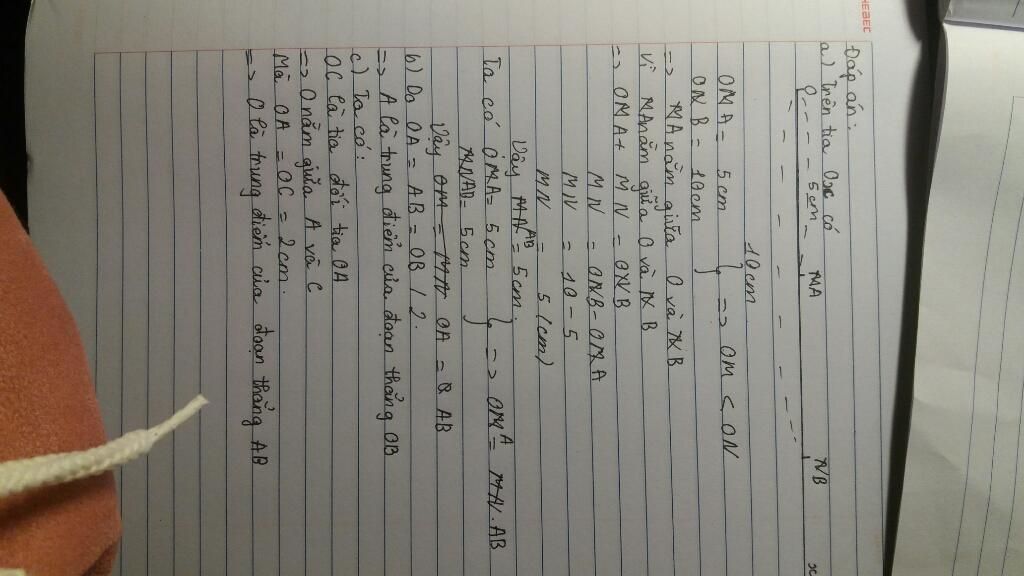 HEBEC
Đáp án:
a) Trên tia Ox có
0 5cm MA NB x
10cm
OMA = 5cm } => OM < ON
ONB = 10cm
=> MA nằm giữa O và NB
Vì MA nằm giữa O và NB
=> OMA + MN = ONB
MN = ONB - OMA
MN = 10 - 5
MN = 5 (cm)
Vậy MN AB = 5cm.
Ta có OMA = 5cm } => OMA = MN. AB
MNAB = 5cm
Vậy OM = MN OA = AB
b) Do OA = AB = OB / 2.
=> A là trung điểm của đoạn thẳng OB
c) Ta có:
OC là tia đối tia OA
=> O nằm giữa A và C
Mà OA = OC = 2cm.
=> O là trung điểm của đoạn thẳng AB